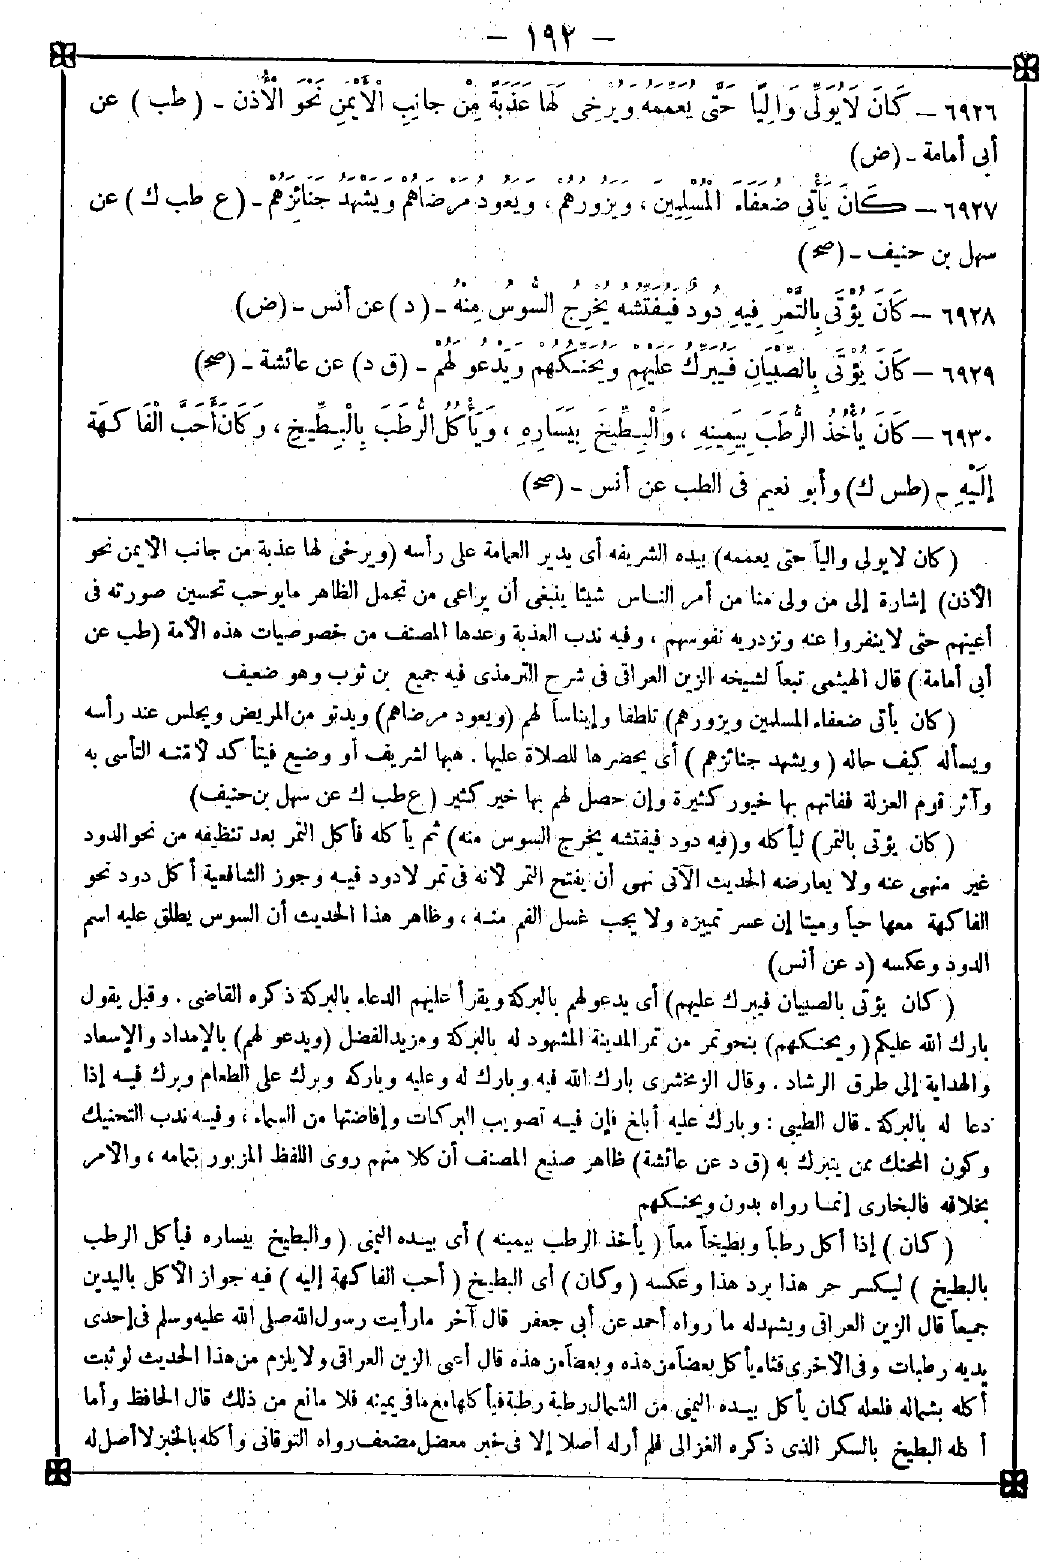 — ١٩٢ —
٦٩٢٦ — كَانَ لَا يُوَلِّى وَالِيًا حَتَّى يُعَمِّمَهُ وَيُرْخِى لَهَا عَذَبَةً مِنْ جانِبِ الْأَيْمَنِ نَحْوَ الْأُذُنِ - ( طب ) عن
أبى أمامة - (ض)
٦٩٢٧ — كَانَ يَأْتِى ضُعَفَاءَ الْمُسْلِمِينَ ، وَيَزُورُهُمْ ، وَيَعُودُ مَرْضَاهُمْ وَيَشْهَدُ جَنَائِزَهُمْ - (ع طب ك ) عن
سهل بن حنيف - (صح)
٦٩٢٨ — كَانَ يُؤْتَى بِالتَّمْرِ فِيهِ دُودٌ فَيُفَتِّشُهُ يُخْرِجُ السُّوسَ مِنْهُ - ( د ) عن أنس - (ض)
٦٩٢٩ — كَانَ يُؤْتَى بِالصِّبْيَانِ فَيُبَرِّكُ عَلَيْهِمْ وَيُحَنِّكُهُمْ وَيَدْعُو لَهُمْ - (ق د) عن عائشة - (صح)
٦٩٣٠ — كَانَ يَأْخُذُ الرُّطَبَ بِيَمِينِهِ ، وَالْبِطِّيخَ بِيَسَارِهِ ، وَيَأْكُلُ الرُّطَبَ بِالْبِطِّيخِ ، وَكَانَ أَحَبَّ الْفَاكِهَةِ
إِلَيْهِ - (طس ك) وأبو نعيم فى الطب عن أنس - (صح)
( كان لا يولى والياً حتى يعممه) بيده الشريفه أى يدير العمامة على رأسه (ويرخى لها عذبة من جانب الأيمن نحو
الأذن) إشارة إلى من ولى منا من أمر الناس شيئا ينبغى أن يراعى من تجمل الظاهر مايوجب تحسين صورته فى
أعينهم حتى لا ينفروا عنه وتزدريه نفوسهم ، وفيه ندب العذبة وعدها المصنف من خصوصيات هذه الأمة (طب عن
أبى أمامة ) قال الهيثمى تبعاً لشيخه الزين العراقى فى شرح الترمذى فيه جميع بن ثوب وهو ضعيف
( كان يأتى ضعفاء المسلمين ويزورهم) تلطفا وإيناساً لهم (ويعود مرضاهم) ويدنو من المريض ويجلس عند رأسه
ويسأله كيف حاله ( ويشهد جنائزهم ) أى يحضرها للصلاة عليها . هبها لشريف أو وضيع فيتأكد لأمته التأسى به
وآثر قوم العزلة ففاتهم بها خيور كثيرة وإن حصل لهم بها خير كثير (ع طب ك عن سهل بن حنيف)
( كان يؤتى بالتمر) ليأكله و(فيه دود فيفتشه يخرج السوس منه) ثم يأكله فأكل التمر بعد تنظيفه من نحو الدود
غير منهى عنه ولا يعارضه الحديث الآتى نهى أن يفتح التمر لأنه فى تمر لادود فيه وجوز الشافعية أكل دود نحو
الفاكهة معها حياً وميتا إن عسر تمييزه ولا يجب غسل الفم منه ، وظاهر هذا الحديث أن السوس يطلق عليه اسم
الدود وعكسه (د عن أنس)
( كان يؤتى بالصبيان فيبرك عليهم) أى يدعولهم بالبركة ويقرأ عليهم الدعاء بالبركة ذكره القاضى . وقيل يقول
بارك الله عليكم ( ويحنكهم) بنحو تمر من تمر المدينة المشهود له بالبركة ومزيد الفضل (ويدعو لهم) بالإمداد والإسعاد
والهداية إلى طرق الرشاد . وقال الزمخشرى بارك الله فيه وبارك له وعليه وباركه وبرك على الطعام وبرك فيه إذا
دعا له بالبركة . قال الطيبى : وبارك عليه أبلغ فإن فيه تصويب البركات وإفاضتها من السماء ، وفيه ندب التحنيك
وكون المحنك ممن يتبرك به (ق د عن عائشة) ظاهر صنيع المصنف أن كلا منهم روى اللفظ المزبور بتمامه ، والأمر
بخلافه فالبخارى إنما رواه بدون ويحنكهم
( كان ) إذا أكل رطباً وبطيخاً معاً ( يأخذ الرطب بيمينه ) أى بيده اليمنى ( والبطيخ بيساره فيأكل الرطب
بالبطيخ ) ليكسر حر هذا برد هذا وعكسه ( وكان ) أى البطيخ ( أحب الفاكهة إليه ) فيه جواز الأكل باليدين
جميعاً قال الزين العراقى ويشهدله ما رواه أحمد عن أبى جعفر قال آخر مارأيت رسول الله صلى الله عليه وسلم فى إحدى
يديه رطبات وفى الأخرى قثاء يأكل بعضاً من هذه وبعضاً من هذه قال أعنى الزين العراقى ولا يلزم من هذا الحديث لو ثبت
أكله بشماله فلعله كان يأكل بيده اليمنى من الشمال رطبة رطبة فيأكلها مع مافى يمينه فلا مانع من ذلك قال الحافظ وأما
أكله البطيخ بالسكر الذى ذكره الغزالى فلم أرله أصلا إلا فى خبر معضل مضعف رواه النوقانى وأكله بالخبز لا أصل له